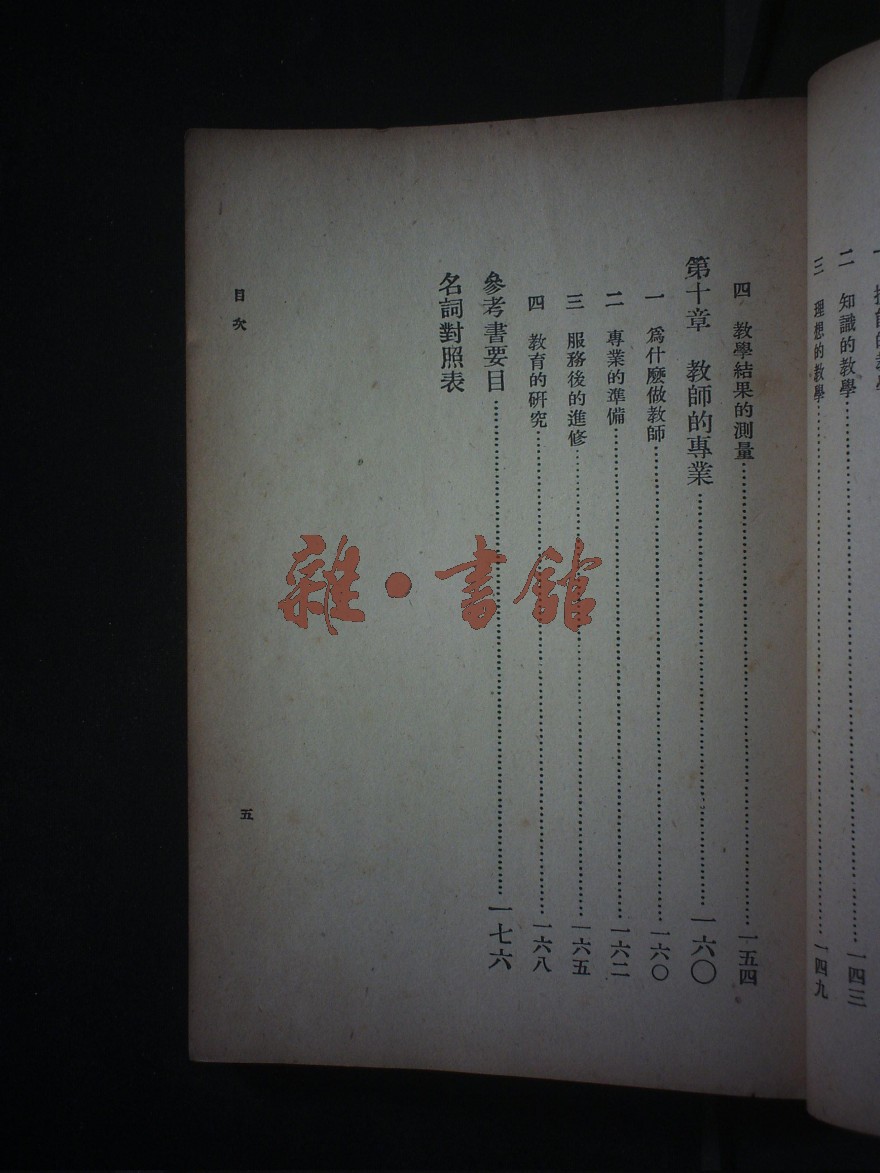 二 知識的教學……一四三
三 理想的教學……一四九
四 教學結果的測量……一五四
第十章 教師的專業……一六〇
一 爲什麼做教師……一六〇
二 專業的準備……一六二
三 服務後的進修……一六五
四 教育的研究……一六八
參考書要目……一七六
名詞對照表
目次
五
雜·書館